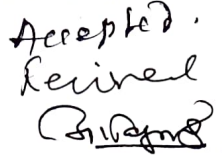 Accepted.
Recived